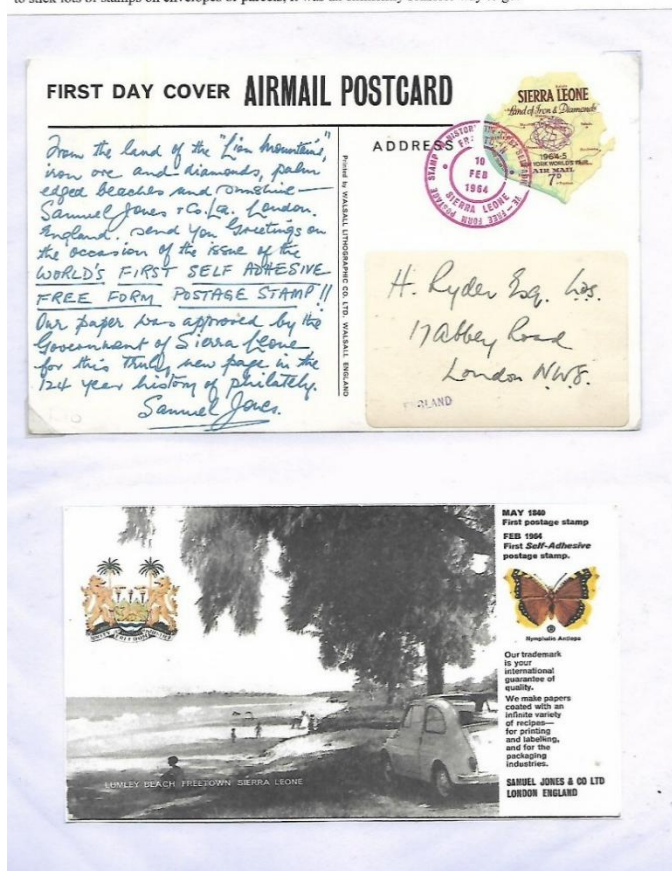 to stick lots of stamps on envelopes or parcels, it was an
FIRST DAY COVER AIRMAIL POSTCARD
From the land of the "Lion Mountains",
iron ore and diamonds, palm
edged beaches and sunshine —
Samuel Jones & Co. Ltd. London.
England. send you Greetings on
the occasion of the issue of the
WORLD'S FIRST SELF ADHESIVE
FREE FORM POSTAGE STAMP!!
Our paper was approved by the
Government of Sierra Leone
for this truly new page in the
124 year history of philately.
Samuel Jones.
Printed by WALSALL LITHOGRAPHIC CO. LTD. WALSALL ENGLAND
ADDRESS
10
FEB
1964
SIERRA LEONE
FREE FORM POSTAGE STAMP
SIERRA LEONE
Land of Iron & Diamonds
1964-5
NEW YORK WORLD'S FAIR
AIR MAIL
7D
H. Ryder Esq.
17 Abbey Road
London N.W.8.
ENGLAND
LUMLEY BEACH FREETOWN SIERRA LEONE
MAY 1840
First postage stamp
FEB 1964
First Self-Adhesive
postage stamp.
Nymphalis Antiopa
Our trademark
is your
international
guarantee of
quality.
We make papers
coated with an
infinite variety
of recipes—
for printing
and labelling,
and for the
packaging
industries.
SAMUEL JONES & CO LTD
LONDON ENGLAND